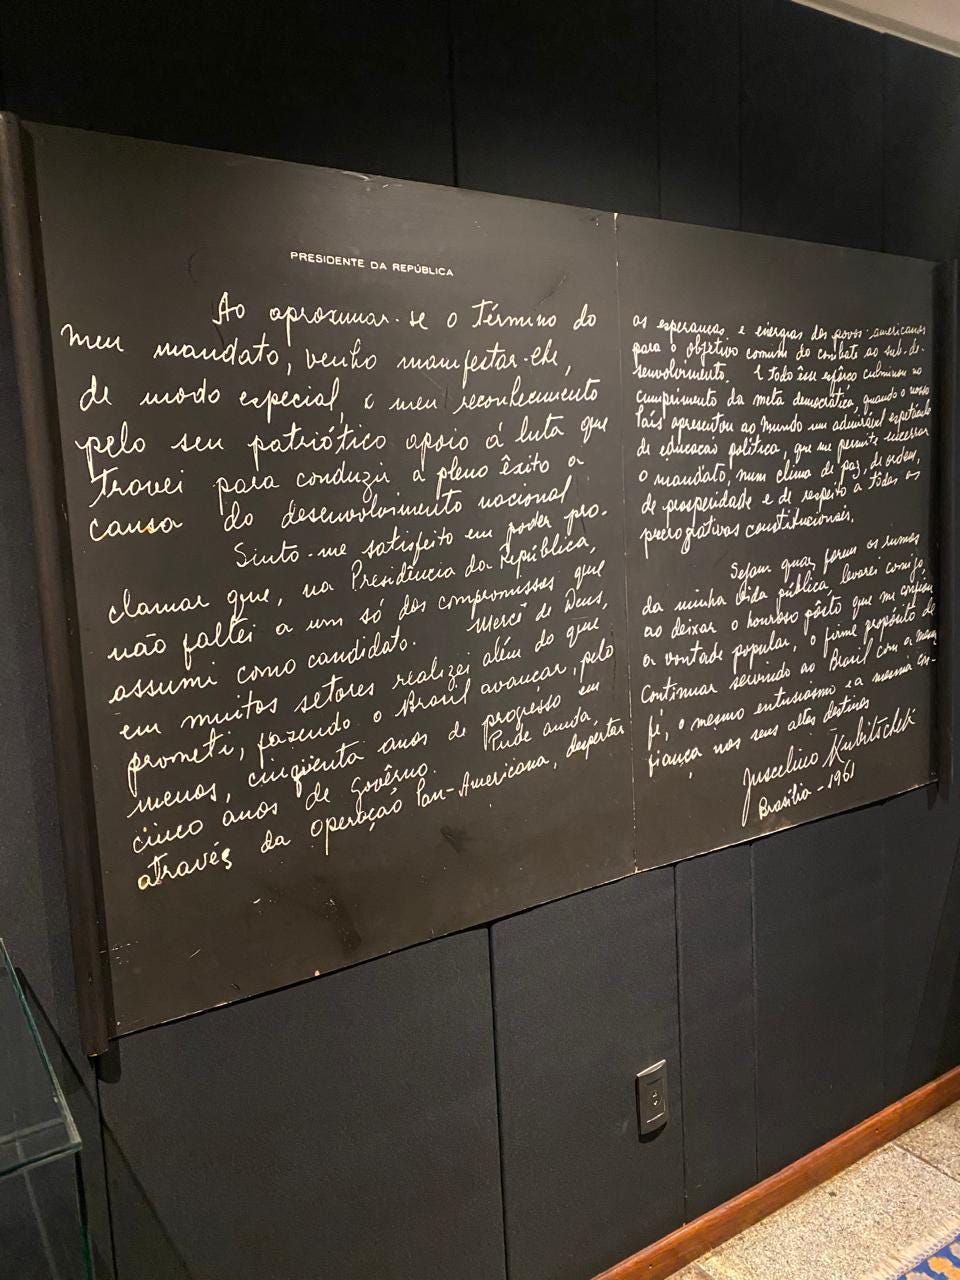 PRESIDENTE DA REPÚBLICA
Ao aproximar-se o término do
meu mandato, venho manifestar-lhe,
de modo especial, o meu reconhecimento
pelo seu patriótico apoio á luta que
travei para conduzir a pleno êxito a
causa do desenvolvimento nacional.
Sinto-me satisfeito em poder pro-
clamar que, na Presidência da República,
não faltei a um só dos compromissos que
assumi como candidato. Mercê de Deus,
em muitos setores realizei além do que
prometi, fazendo o Brasil avançar, pelo
menos, cinqüenta anos de progresso em
cinco anos de Govêrno. Pude ainda,
através da Operação Pan-Americana, despertar
as esperanças e energias dos povos americanos
para o objetivo comum do combate ao sub-de-
senvolvimento. E todo êsse esfôrço culminou no
cumprimento da meta democrática, quando o nosso
País apresentou ao mundo um admirável espetáculo
de educação política, que me permite encerrar
o mandato, num clima de paz, de ordem,
de prosperidade e de respeito a todas as
prerrogativas constitucionais.
Sejam quais forem os rumos
da minha vida pública, levarei comigo,
ao deixar o honroso pôsto que me confiou
a vontade popular, o firme propósito de
continuar servindo ao Brasil com a mesma
fé, o mesmo entusiasmo e a mesma con-
fiança nos seus altos destinos
Juscelino Kubitschek
Brasília - 1961